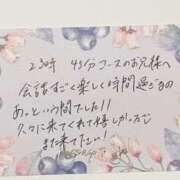 23時 45分コースのお兄様へ
会話すごく楽しく時間過ぎるの
あっという間でした!!
久々に来てくれて嬉しかったです
また来て下さい!